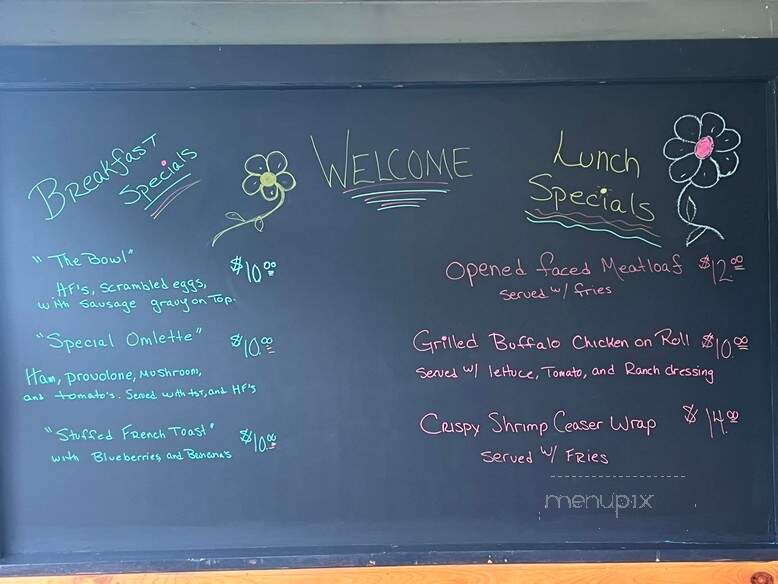 Breakfast
Specials
"The Bowl" $10.00
HF's, scrambled eggs,
with sausage gravy on Top.
"Special Omlette" $10.00
Ham, provolone, Mushroom,
and tomato's. Served with tst, and HF's
"Stuffed French Toast" $10.00
with Blueberries, and Banana's
WELCOME
Lunch
Specials
Opened faced Meatloaf $12.00
served w/ fries
Grilled Buffalo Chicken on Roll $10.00
served w/ lettuce, Tomato, and Ranch dressing
Crispy Shrimp Ceaser Wrap $14.00
served w/ Fries
menupix